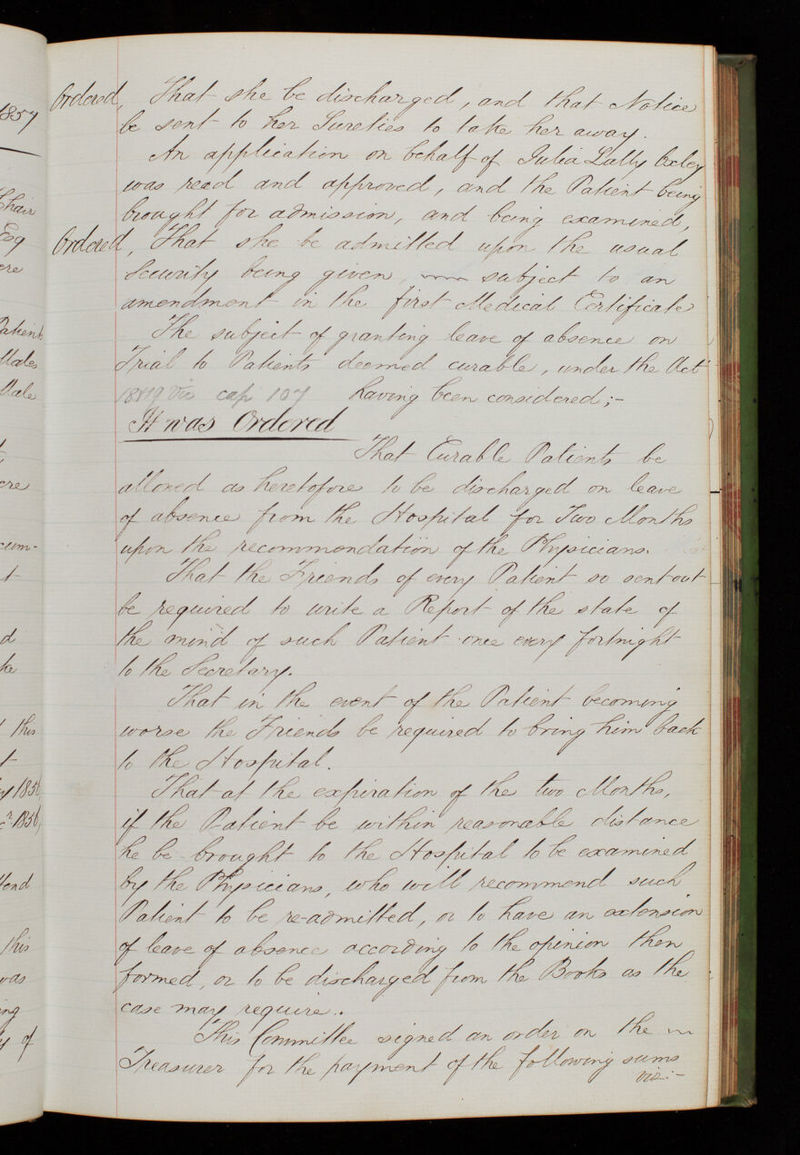 Ordered, That she be discharged, and that Notice
be sent to her Sureties to take her away.
An application on behalf of Julia Lally Oxley
was read and approved, and the Patient being
brought for admission, and being examined,
Ordered, That she be admitted upon the usual
Security being given, subject to an
amendment in the first Medical Certificate
The subject of granting leave of absence on
Trial to Patients deemed curable, under the Act
18&19 Vic cap 107 having been considered;-
It was Ordered
That Curable Patients be
allowed as heretofore to be discharged on leave
of absence from the Hospital for Two Months
upon the recommendation of the Physicians.
That the Friends of every Patient so sent out
be required to write a Report of the state of
the mind of such Patient once every fortnight
to the Secretary.
That in the event of the Patient becoming
worse the Friends be required to bring him back
to the Hospital.
That at the expiration of the two Months,
if the Patient be within reasonable distance
he be brought to the Hospital to be examined
by the Physicians, who will recommend such
Patient to be re-admitted, or to have an extension
of leave of absence according to the opinion then
formed, or to be discharged from the Books as the
case may require.
This Committee signed an order on the
Treasurer for the payment of the following sums
viz:-